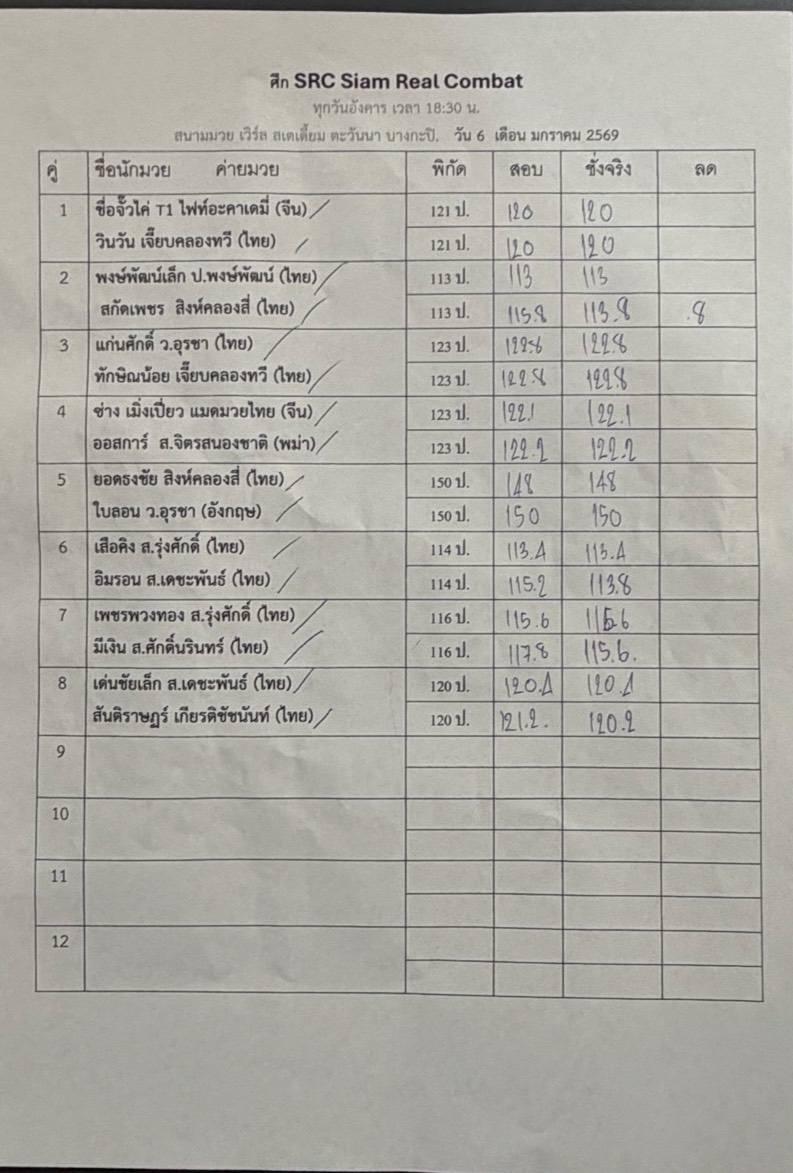 ศึก SRC Siam Real Combat
ทุกวันอังคาร เวลา 18:30 น.
สนามมวย เวิร์ล สเตเดี้ยม ตะวันนา บางกะปิ. วัน 6 เดือน มกราคม 2569
คู่ ชื่อนักมวย ค่ายมวย พิกัด สอบ ชั่งจริง ลด
1 ชื่อจั๊วไค่ T1 ไฟท์อะคาเดมี่ (จีน) 121 ป. 120 120
วินวัน เจี๊ยบคลองทวี (ไทย) 121 ป. 120 120
2 พงษ์พัฒน์เล็ก ป.พงษ์พัฒน์ (ไทย) 113 ป. 113 113
สกัดเพชร สิงห์คลองสี่ (ไทย) 113 ป. 115.8 113.8 .8
3 แก่นศักดิ์ ว.อุรชา (ไทย) 123 ป. 122.8 122.8
ทักษิณน้อย เจี๊ยบคลองทวี (ไทย) 123 ป. 122.8 122.8
4 ซ่าง เมิ่งเปี่ยว แมดมวยไทย (จีน) 123 ป. 122.1 122.1
ออสการ์ ส.จิตรสนองชาติ (พม่า) 123 ป. 122.2 122.2
5 ยอดธงชัย สิงห์คลองสี่ (ไทย) 150 ป. 148 148
ใบลอน ว.อุรชา (อังกฤษ) 150 ป. 150 150
6 เสือคิง ส.รุ่งศักดิ์ (ไทย) 114 ป. 113.4 113.4
อิมรอน ส.เดชะพันธ์ (ไทย) 114 ป. 115.2 113.8
7 เพชรพวงทอง ส.รุ่งศักดิ์ (ไทย) 116 ป. 115.6 115.6
มีเงิน ส.ศักดิ์นรินทร์ (ไทย) 116 ป. 117.8 115.6.
8 เด่นชัยเล็ก ส.เดชะพันธ์ (ไทย) 120 ป. 120.4 120.4
สันติราษฎร์ เกียรติชัชนันท์ (ไทย) 120 ป. 121.2. 120.2
9
10
11
12